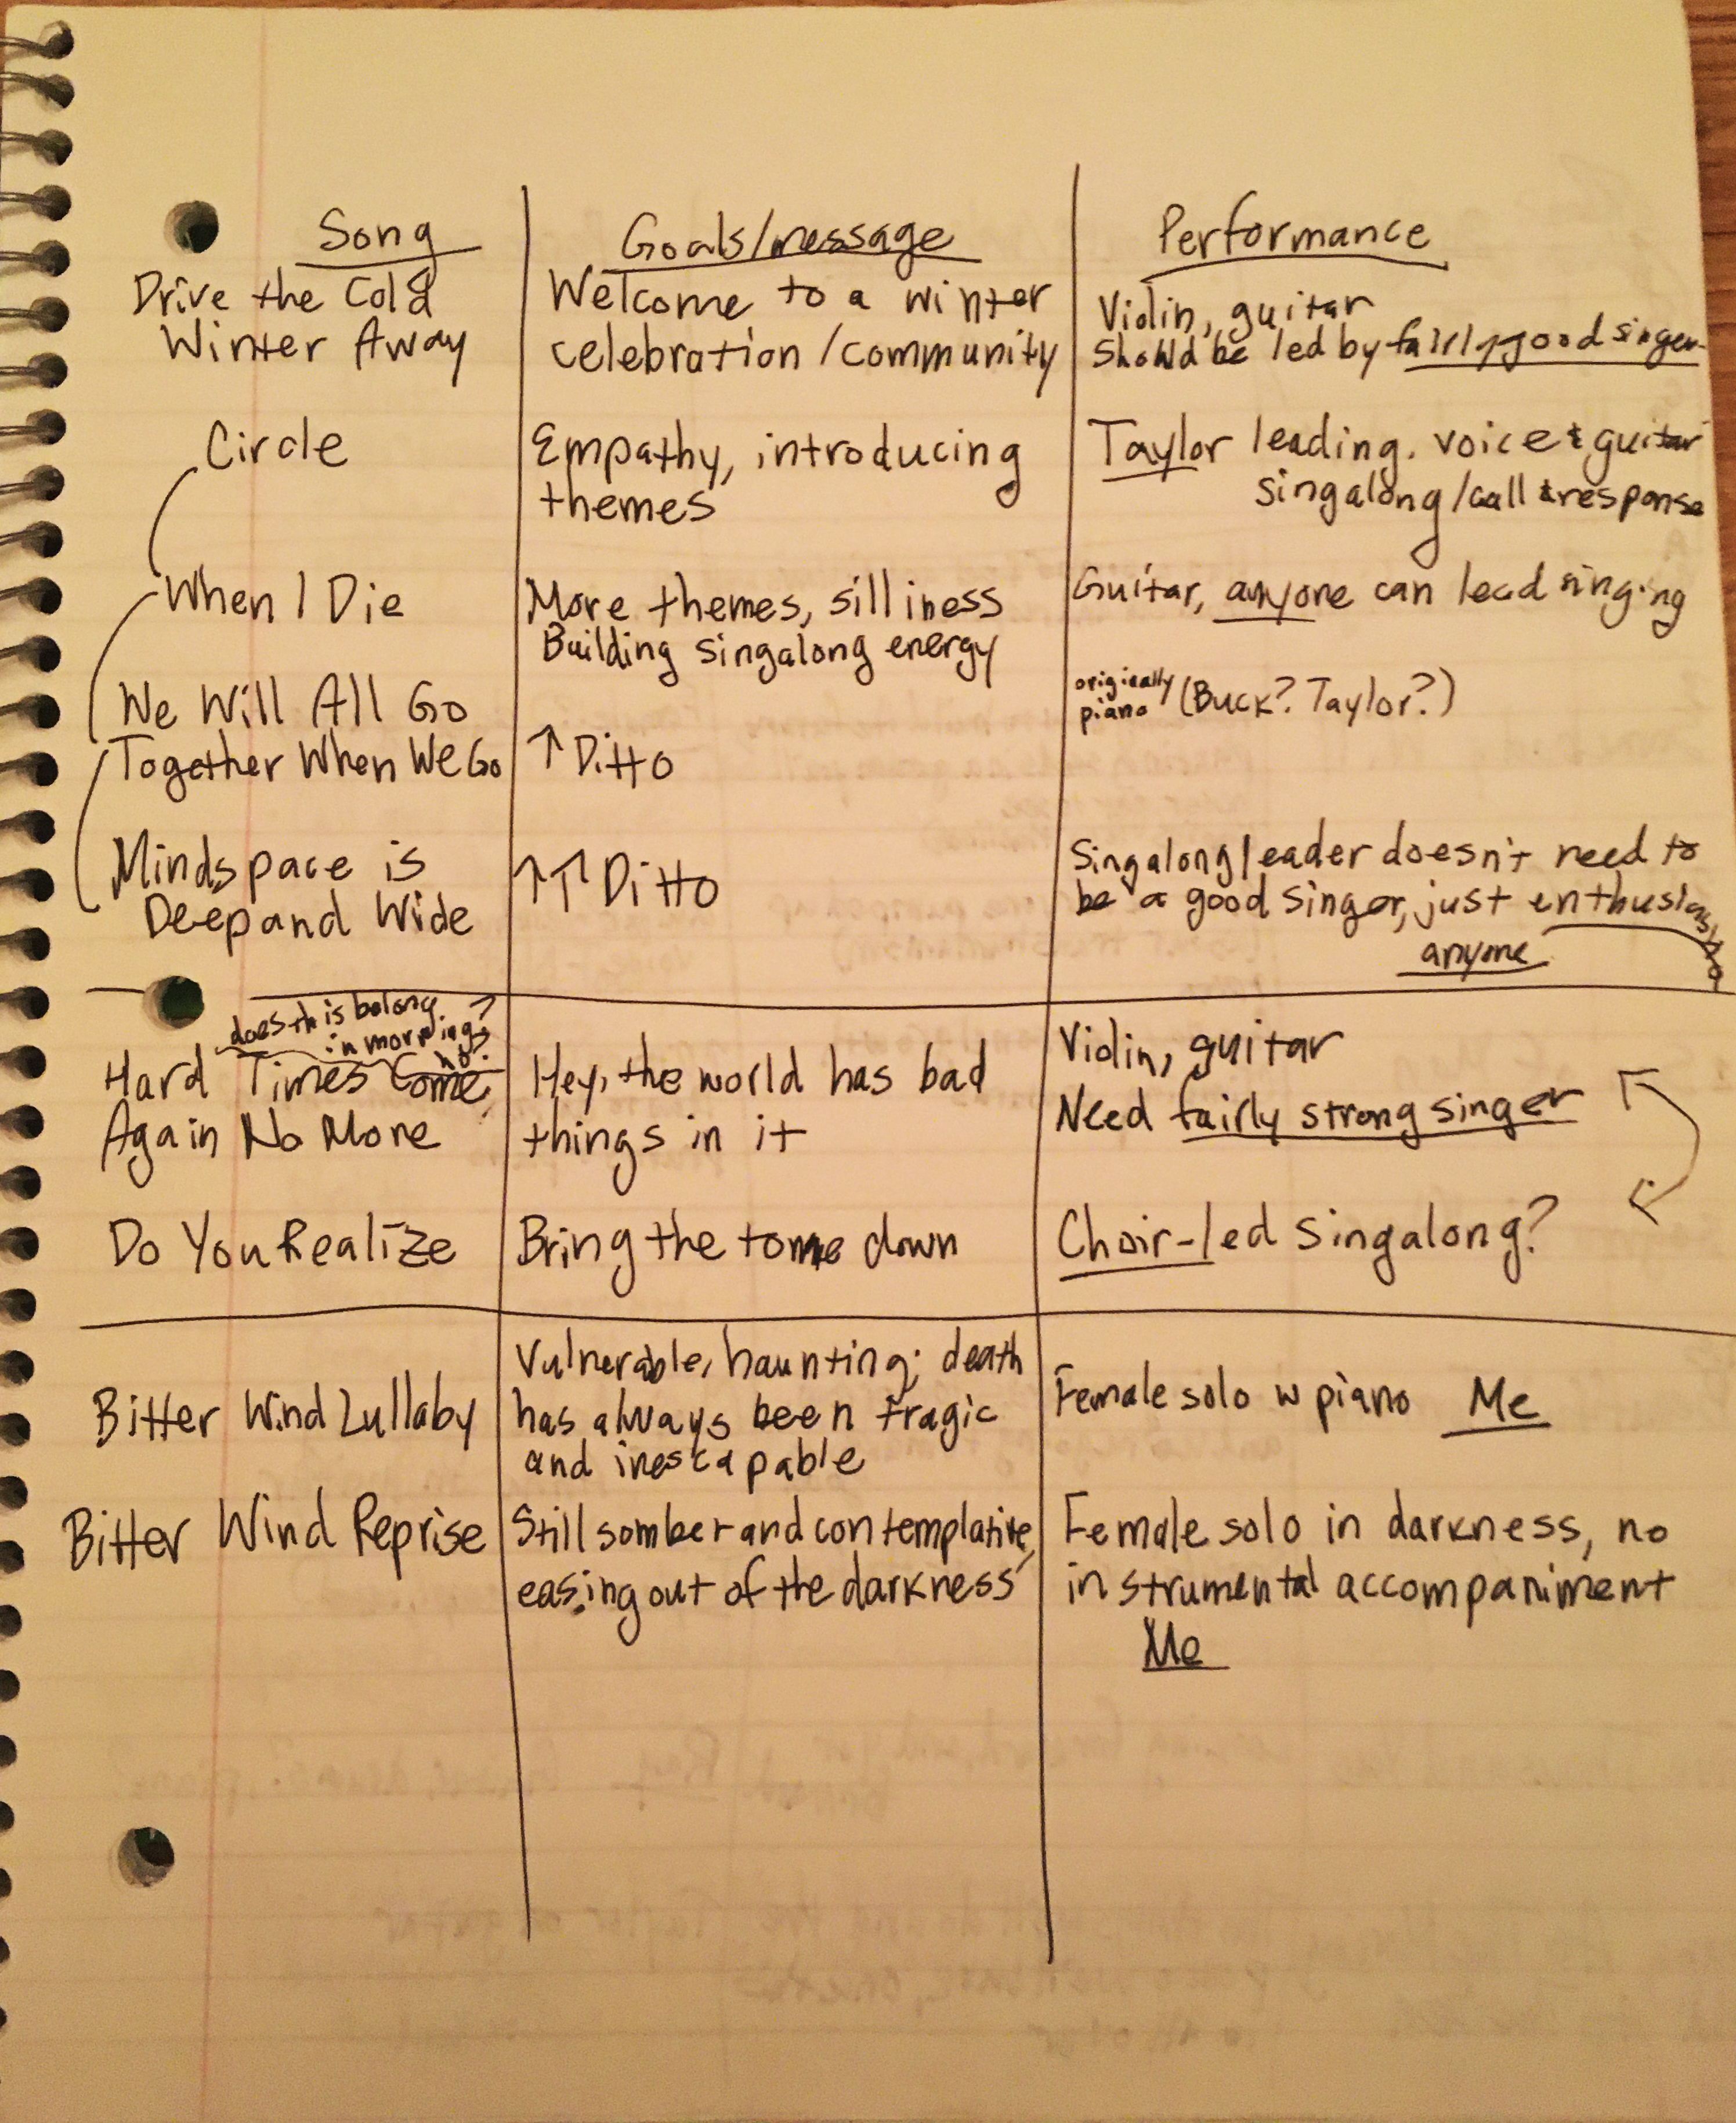 Song
Goals/message
Performance
Drive the Cold
Winter Away
Welcome to a winter
celebration/community
Violin, guitar
should be led by fairly good singer
Circle
Empathy, introducing
themes
Taylor leading. voice & guitar
singalong/call & response
When I Die
More themes, silliness
Building singalong energy
Guitar, anyone can lead singing
We Will All Go
Together When We Go
↑ Ditto
originally
piano (Buck? Taylor?)
Mindspace is
Deep and Wide
↑↑ Ditto
Singalong leader doesn't need to
be a good singer, just enthusiastic
anyone
does this belong
in morning?
Hard Times Come
Again No More
Hey, the world has bad
things in it
Violin, guitar
Need fairly strong singer
Do You Realize
Bring the tone down
Choir-led singalong?
Bitter Wind Lullaby
Vulnerable, haunting; death
has always been tragic
and inescapable
Female solo w piano Me
Bitter Wind Reprise
Still somber and contemplative,
easing out of the darkness
Female solo in darkness, no
instrumental accompaniment
Me